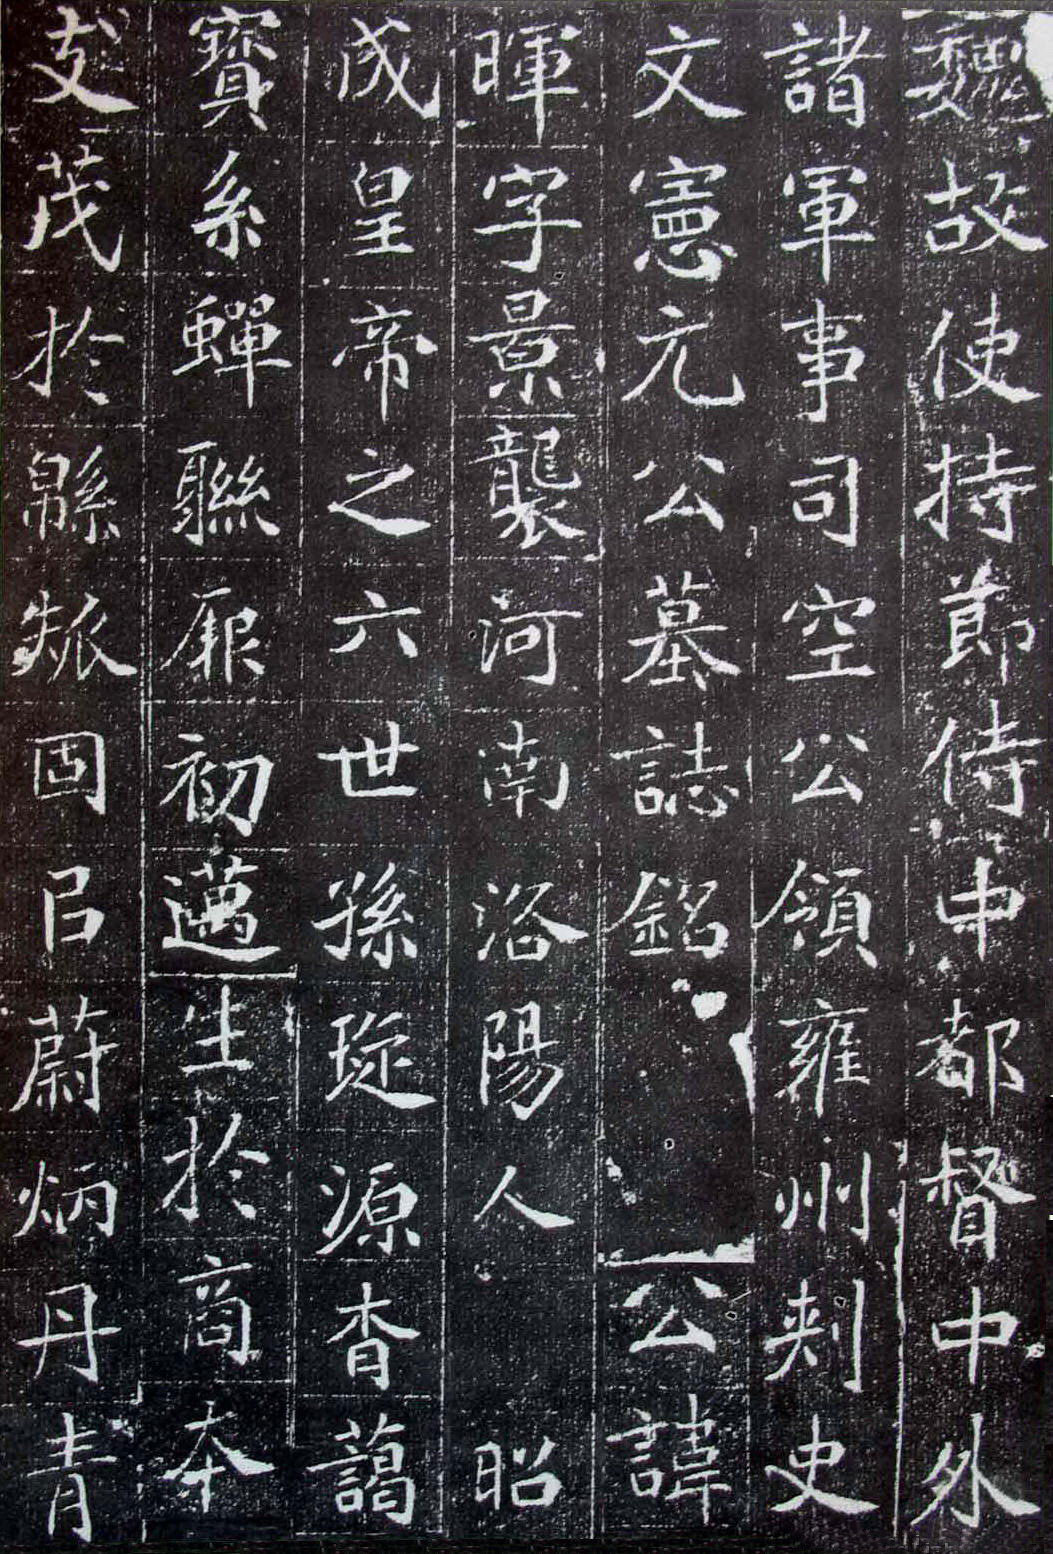 魏故使持節侍中都督中外
諸軍事司空公領雍州刾史
文憲元公墓誌銘 公諱
暉字景襲河南洛陽人 昭
成皇帝之六世孫琁源杳藹
寶系蟬聯厥初邁生於商夲
支茂於緜瓞固㠯蔚炳丹青